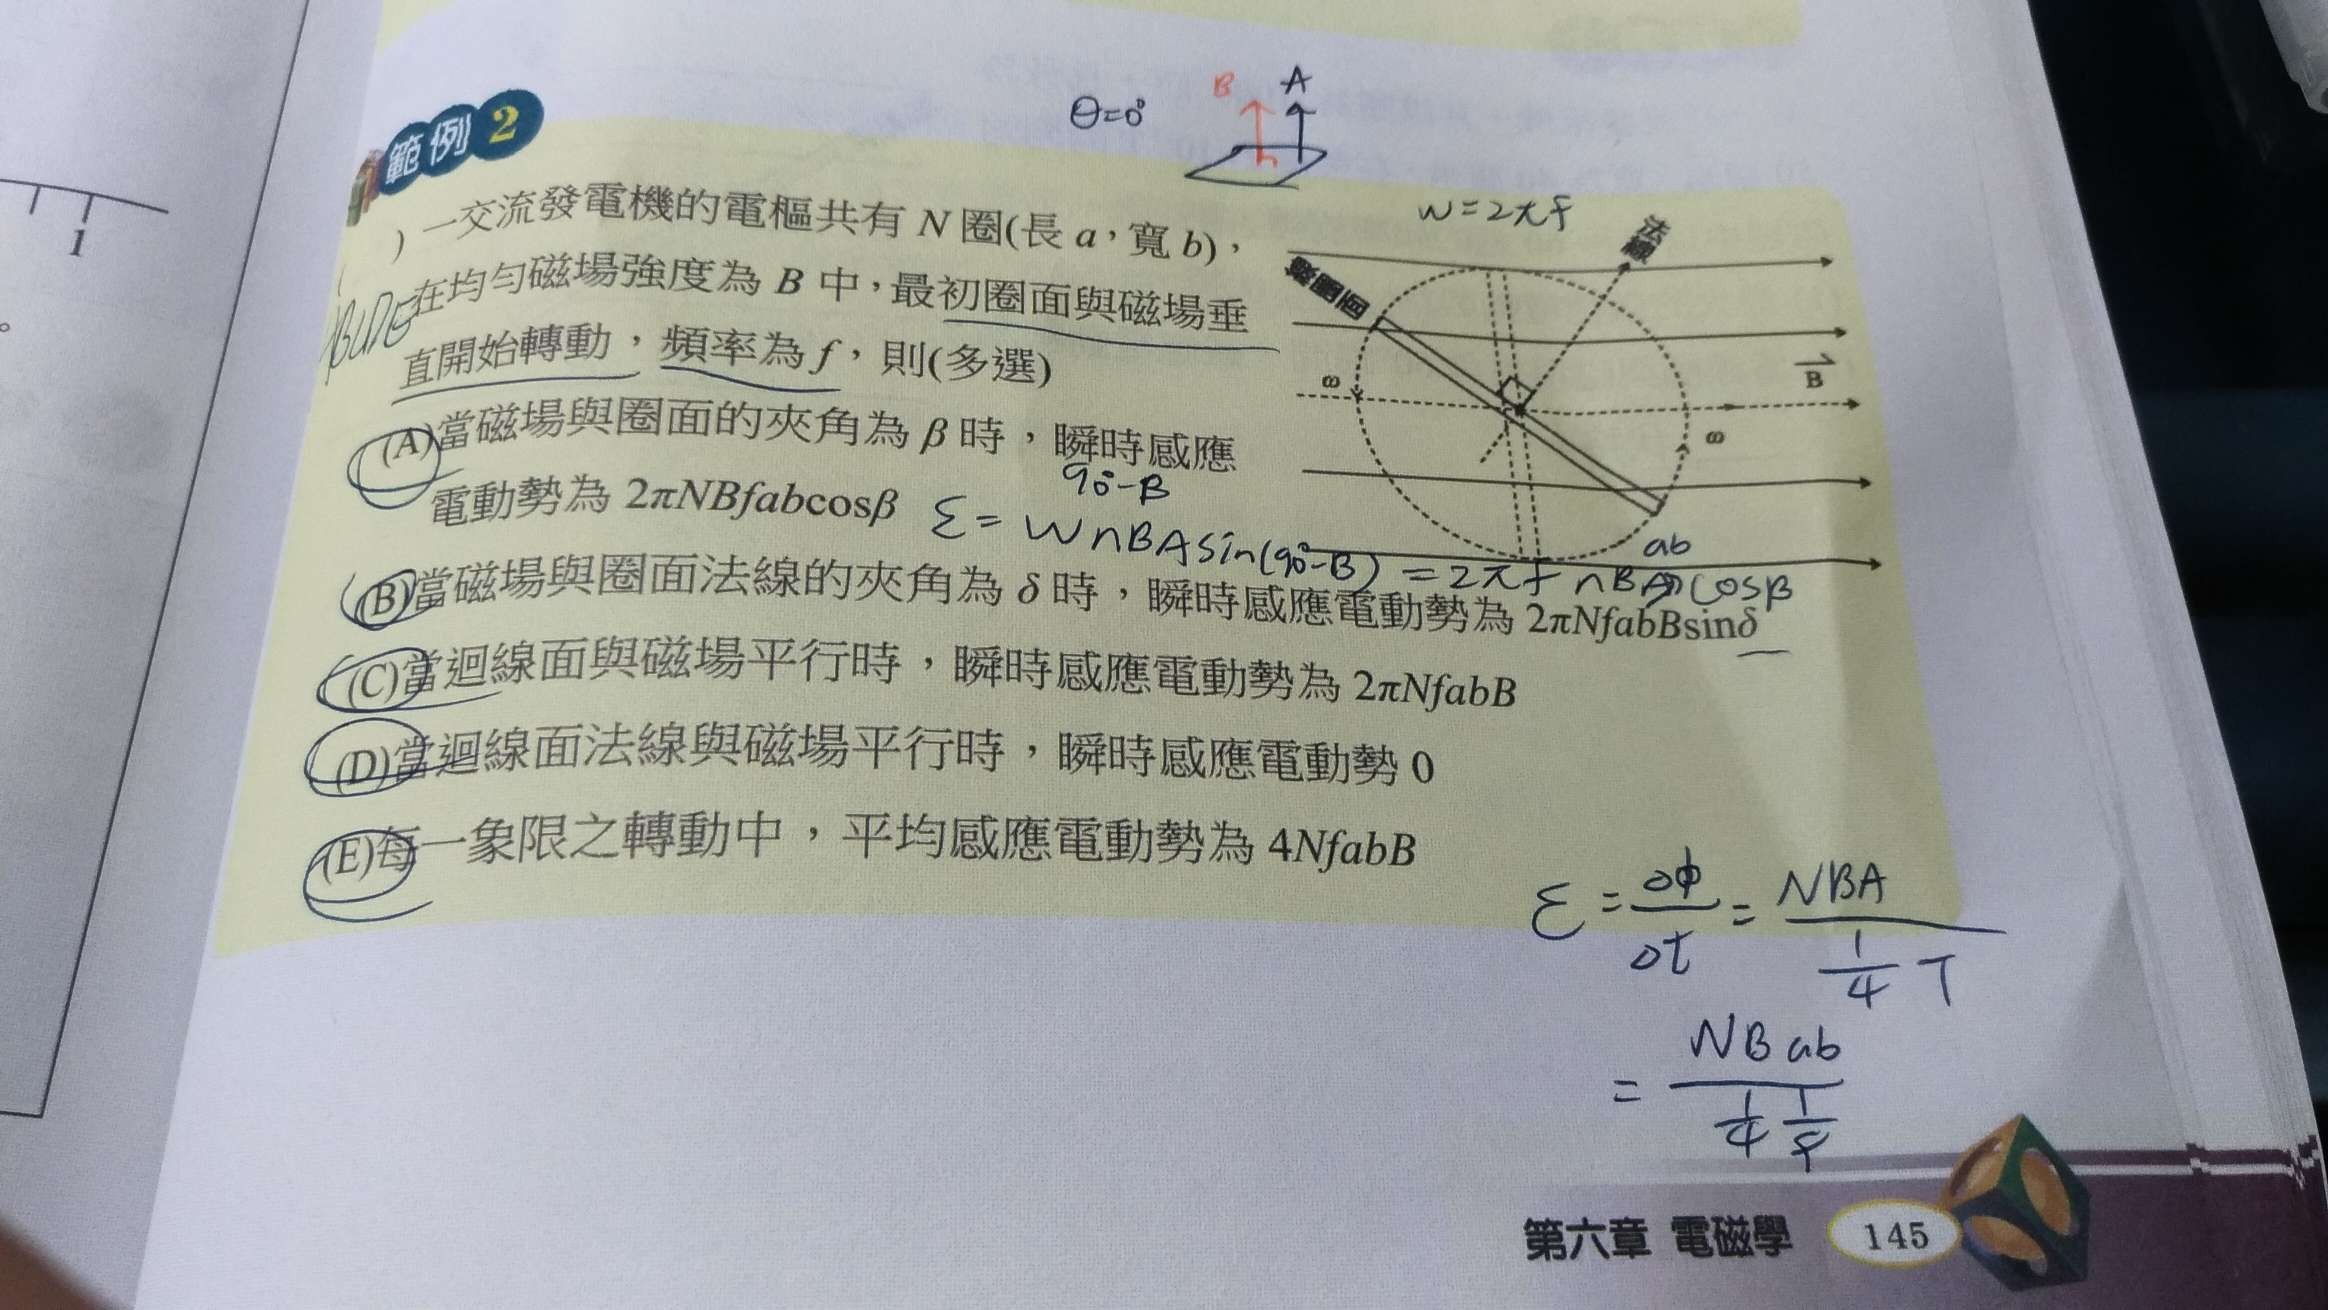 範例 2
θ=0°
B
A
1
)一交流發電機的電樞共有 N 圈(長 a,寬 b),
在均勻磁場強度為 B 中,最初圈面與磁場垂
直開始轉動,頻率為 f,則(多選)
ABCDE
(A)當磁場與圈面的夾角為 β 時,瞬時感應
電動勢為 2πNBfabcosβ
(B)當磁場與圈面法線的夾角為 δ 時,瞬時感應電動勢為 2πNfabBsinδ
(C)當迴線面與磁場平行時,瞬時感應電動勢為 2πNfabB
(D)當迴線面法線與磁場平行時,瞬時感應電動勢 0
(E)每一象限之轉動中,平均感應電動勢為 4NfabB
w=2πf
線圈面
法線
ω
ω
B
90°-B
ε= wnBAsin(90°-B) =2πf nBA cosβ
ab
ε = Δφ/Δt = NBA / (1/4 T)
= NBab / (1/4 1/f)
第六章 電磁學 145